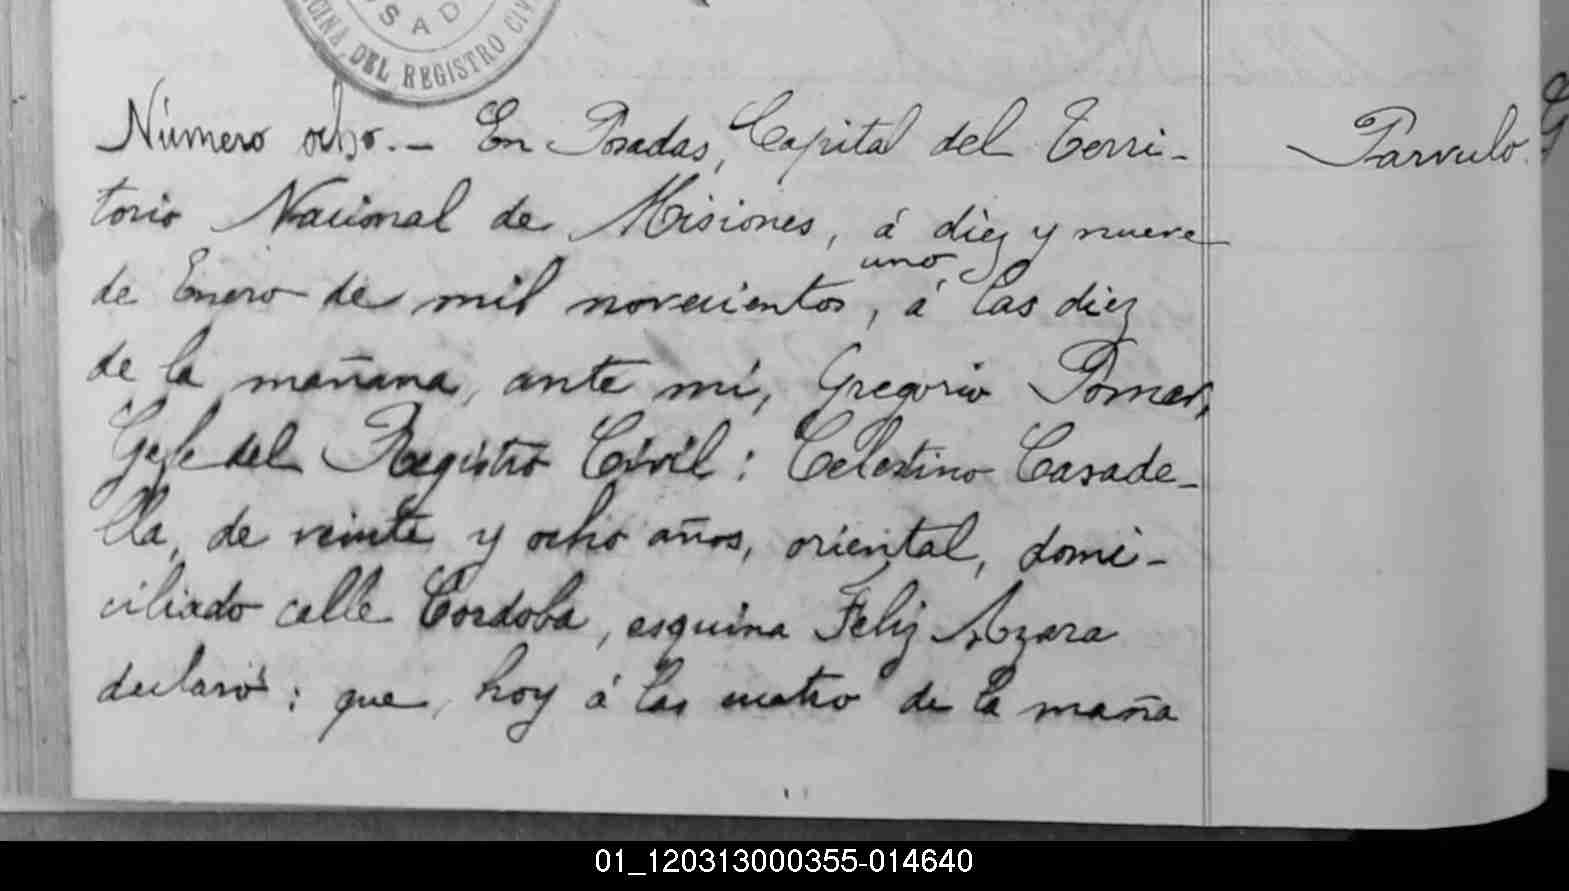 OSAD
OFICINA DEL REGISTRO CIVI
Número ocho.- En Posadas, Capital del Terri- Parvulo.
torio Nacional de Misiones, á diez y nueve
uno
de Enero de mil novecientos, á las diez
de la mañana, ante mí, Gregorio Pomar,
Gefe del Registro Civil: Celestino Casade-
lla, de veinte y ocho años, oriental, domi-
ciliado calle Cordoba, esquina Feliz Azara
declaró: que, hoy á las cuatro de la maña
01_120313000355-014640